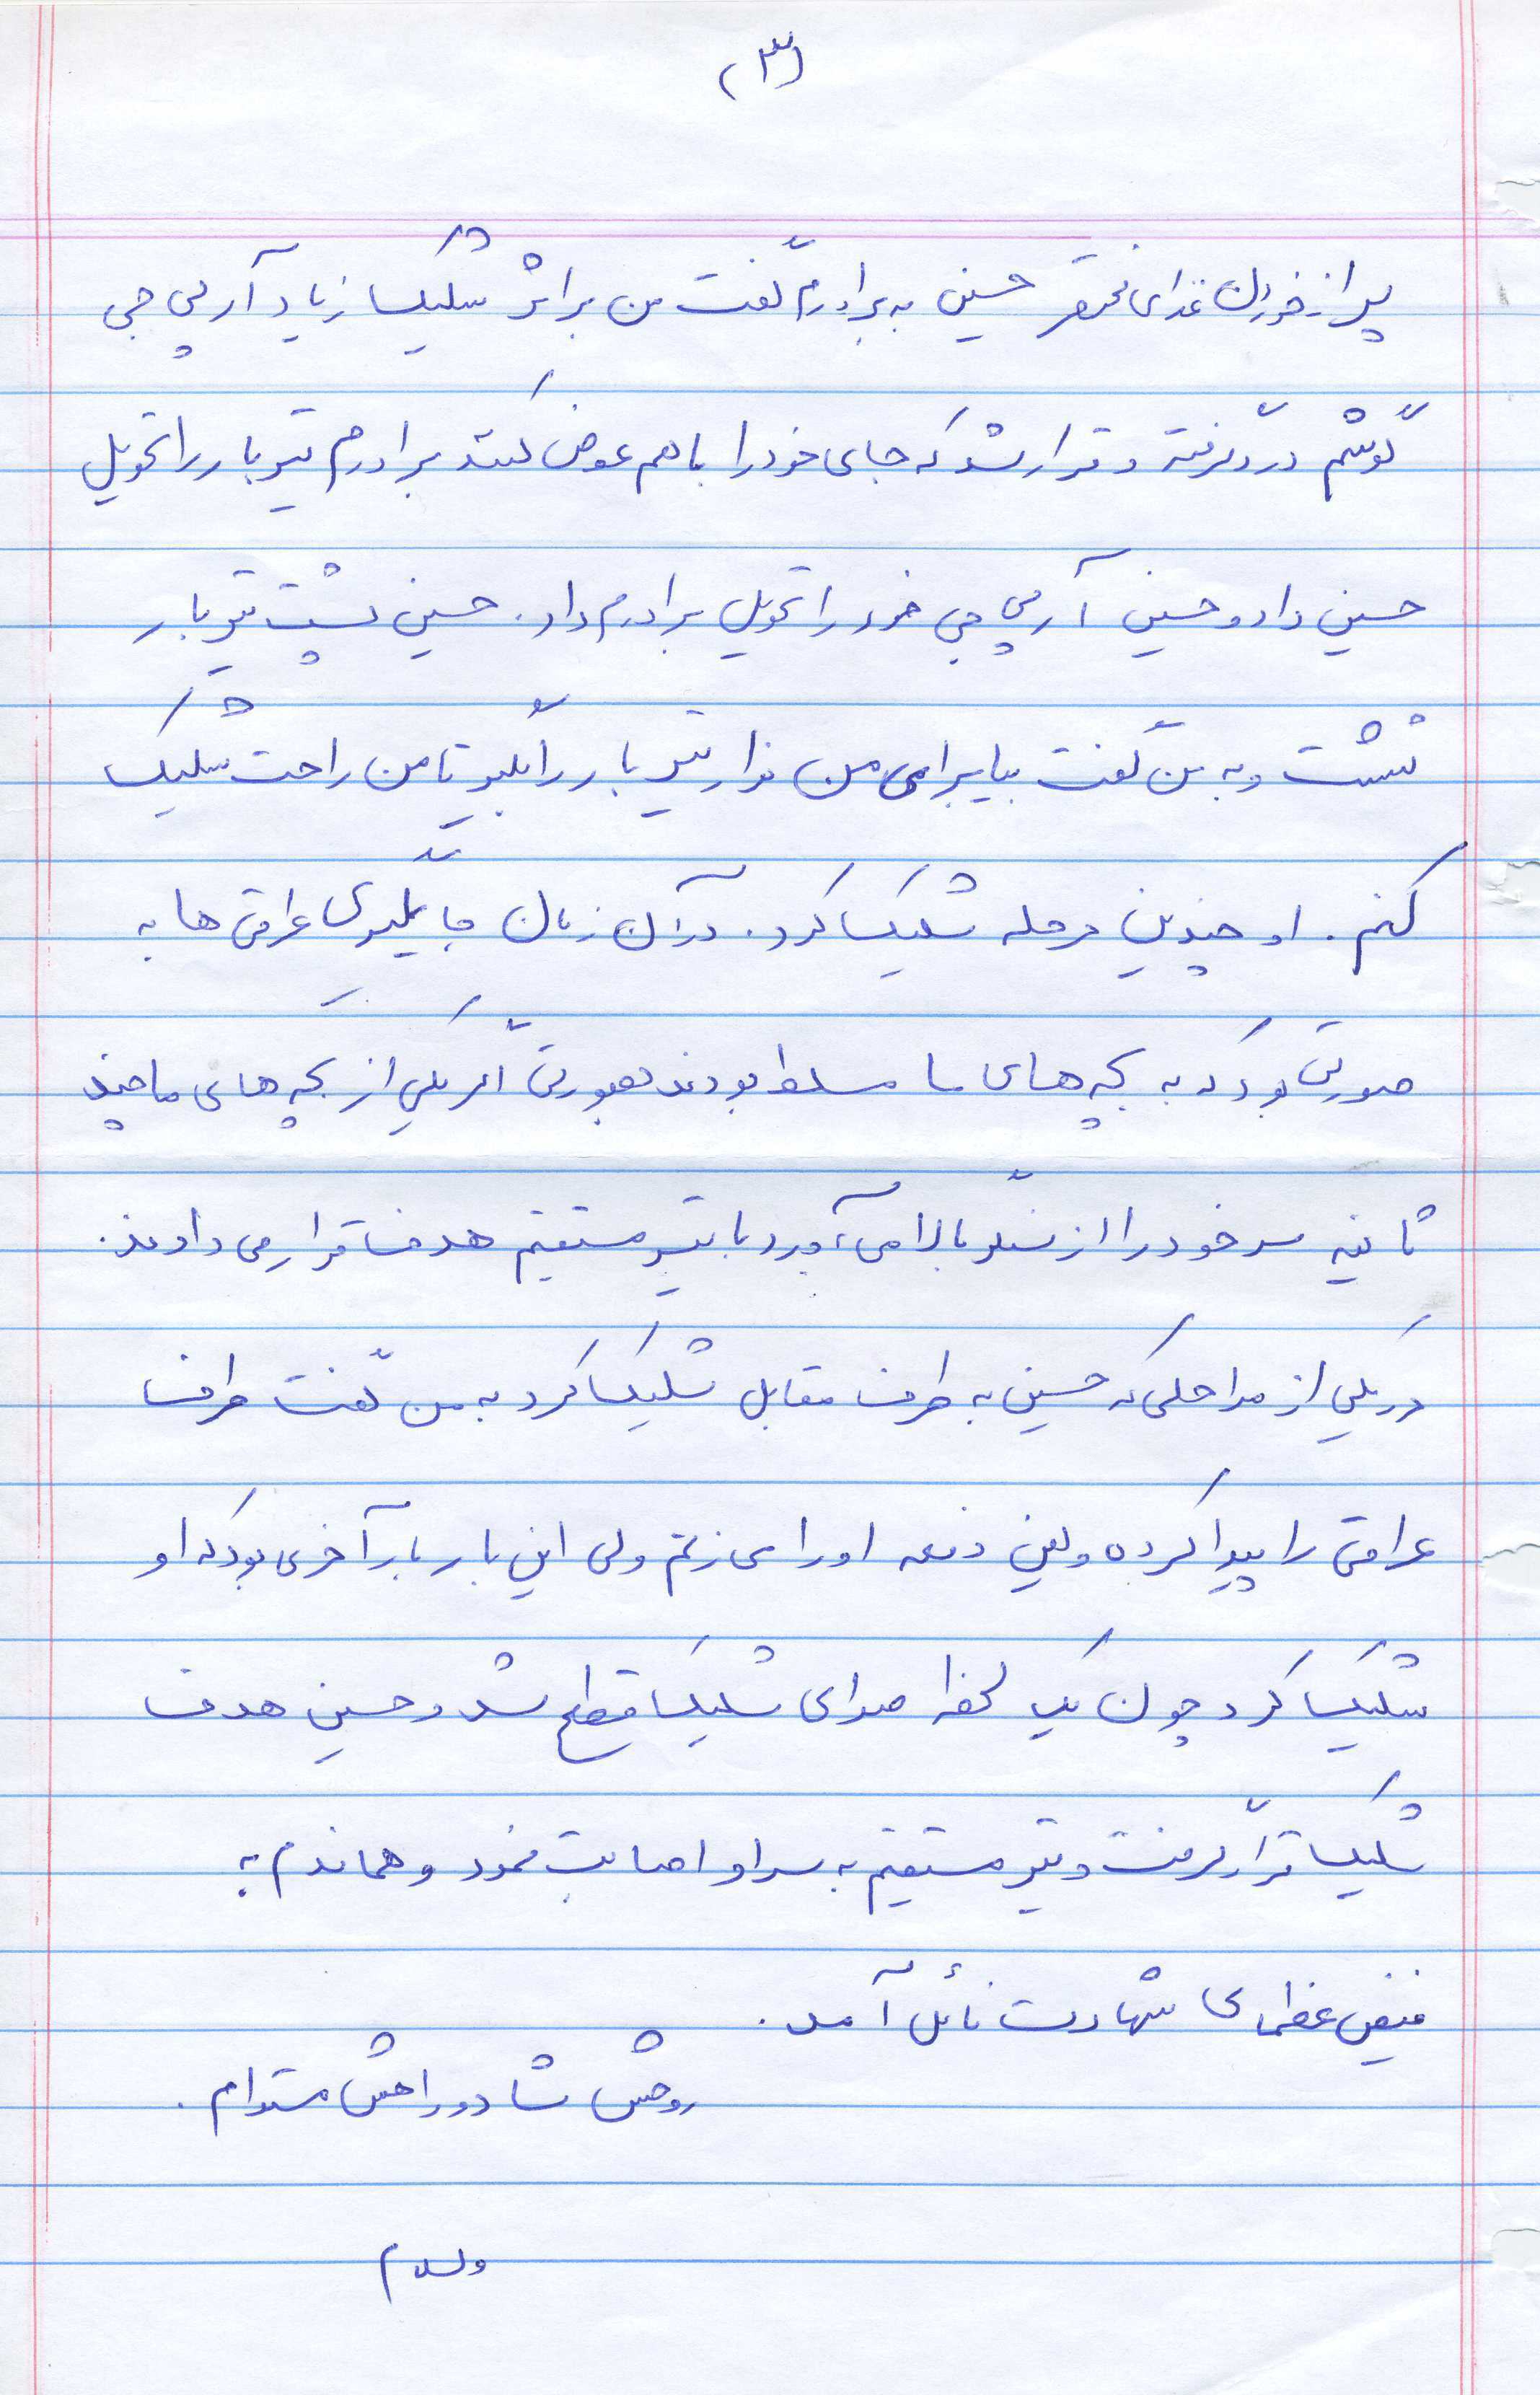 (۳)
پس از خوردن غذای مختصر حسین به برادرم گفت من بر اثر شلیک زیاد آر پی جی
گوشم درد گرفته و قرار شد که جای خود را با هم عوض کنند برادرم تیربار را تحویل
حسین داد و حسین آر پی جی خود را تحویل برادرم داد. حسین پشت تیربار
نشست و به من گفت بیا برای من نوار تیربار را بگیر تا من راحت شلیک
کنم. او چندین مرحله شلیک کرد. در آن زمان جایگیری عراقی ها به
صورتی بود که به بچه های ما مسلط بودند بصورتی اگر یکی از بچه های ما چند
ثانیه سر خود را از سنگر بالا می آورد با تیر مستقیم هدف قرار می دادند.
در یکی از مراحلی که حسین به طرف مقابل شلیک کرد به من گفت طرف
عراقی را پیدا کرده و این دفعه او را می زنم ولی این بار بار آخری بود که او
شلیک کرد چون یک لحظه صدای شلیک قطع شد و حسین هدف
شلیک قرار گرفت و تیر مستقیم به سر او اصابت نمود و هماندم به
فیض عظمای شهادت نائل آمد.
روحش شاد و راهش مستدام.
والسلام